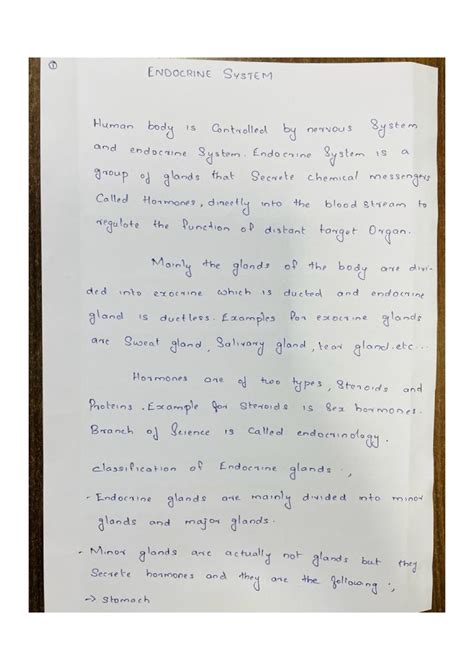 ①
ENDOCRINE SYSTEM
Human body is Controlled by nervous System
and endocrine System. Endocrine System is a
group of glands that Secrete chemical messengers
Called Hormones, directly into the blood stream to
regulate the function of distant target Organ.
Mainly the glands of the body are divi-
ded into exocrine which is ducted and endocrine
gland is ductless. Examples for exocrine glands
are Sweat gland, Salivary gland, tear gland.etc...
Hormones are of two types, Steroids and
Proteins. Example for Steroids is Sex hormones.
Branch of Science is Called endocrinology.
classification of Endocrine glands :,
- Endocrine glands are mainly divided into minor
glands and major glands.
- Minor glands are actually not glands but they
Secrete hormones and they are the following :,
-> Stomach